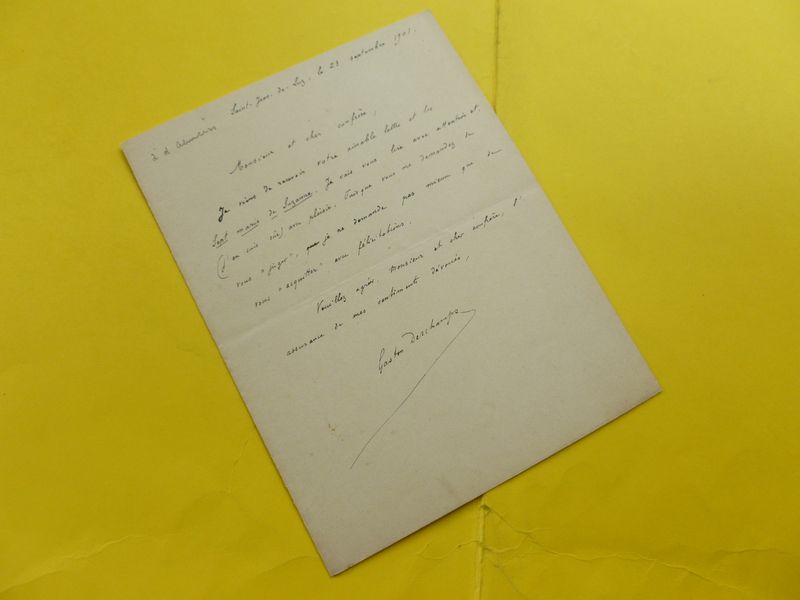 Saint-Jean-de-Luz, le 23 septembre 1901.
Monsieur et cher confrère,
Je viens de recevoir votre aimable lettre et les
Sept maris de Suzanne. Je vais vous lire avec attention et
(j'en suis sûr) avec plaisir. Puisque vous me demandez de
vous "juger", je ne demande pas mieux que de
vous "acquitter" avec félicitations.
Veuillez agréer, Monsieur et cher confrère, l'
assurance de mes sentiments dévoués,
Gaston Deschamps